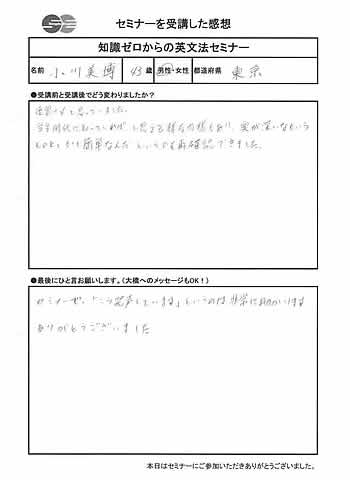 セミナーを受講した感想
知識ゼロからの英文法セミナー
名前 小川 美博 43 歳 男性・女性 都道府県 東京
●受講前と受講後でどう変わりましたか？
と思っていました。
学生時代に知っていれば と思う
簡単なんだ というのを再確認できました。
●最後にひと言お願いします。(大橋へのメッセージもOK！)
セミナーで、「こう発声しています」というのは非常に助かります
ありがとうございました
本日はセミナーにご参加いただきありがとうございました。